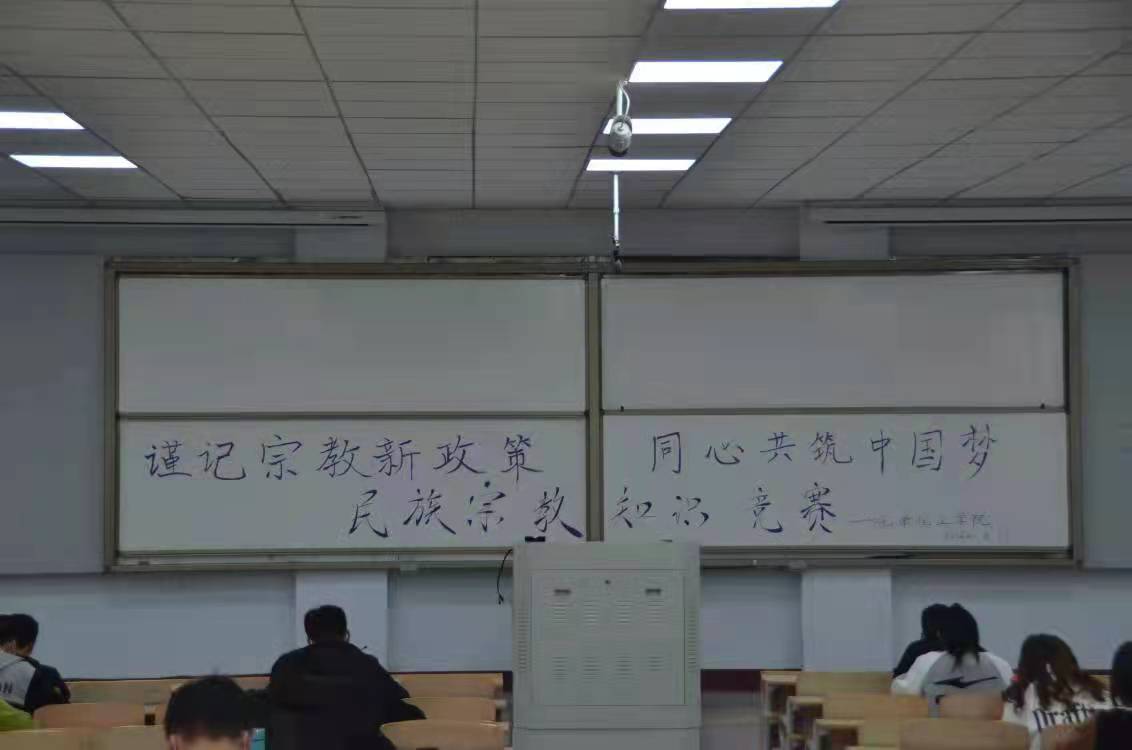 谨记宗教新政策 同心共筑中国梦
民族宗教知识竞赛
Draft